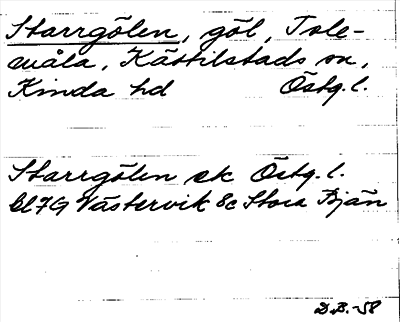 Starrgölen, göl, Tole-
måla, Kättilstads sn,
Kinda hd Östg. l.
Starrgölen ek Östg. l.
bl 7G Västervik Sc Stora Bjän
D.B.-58